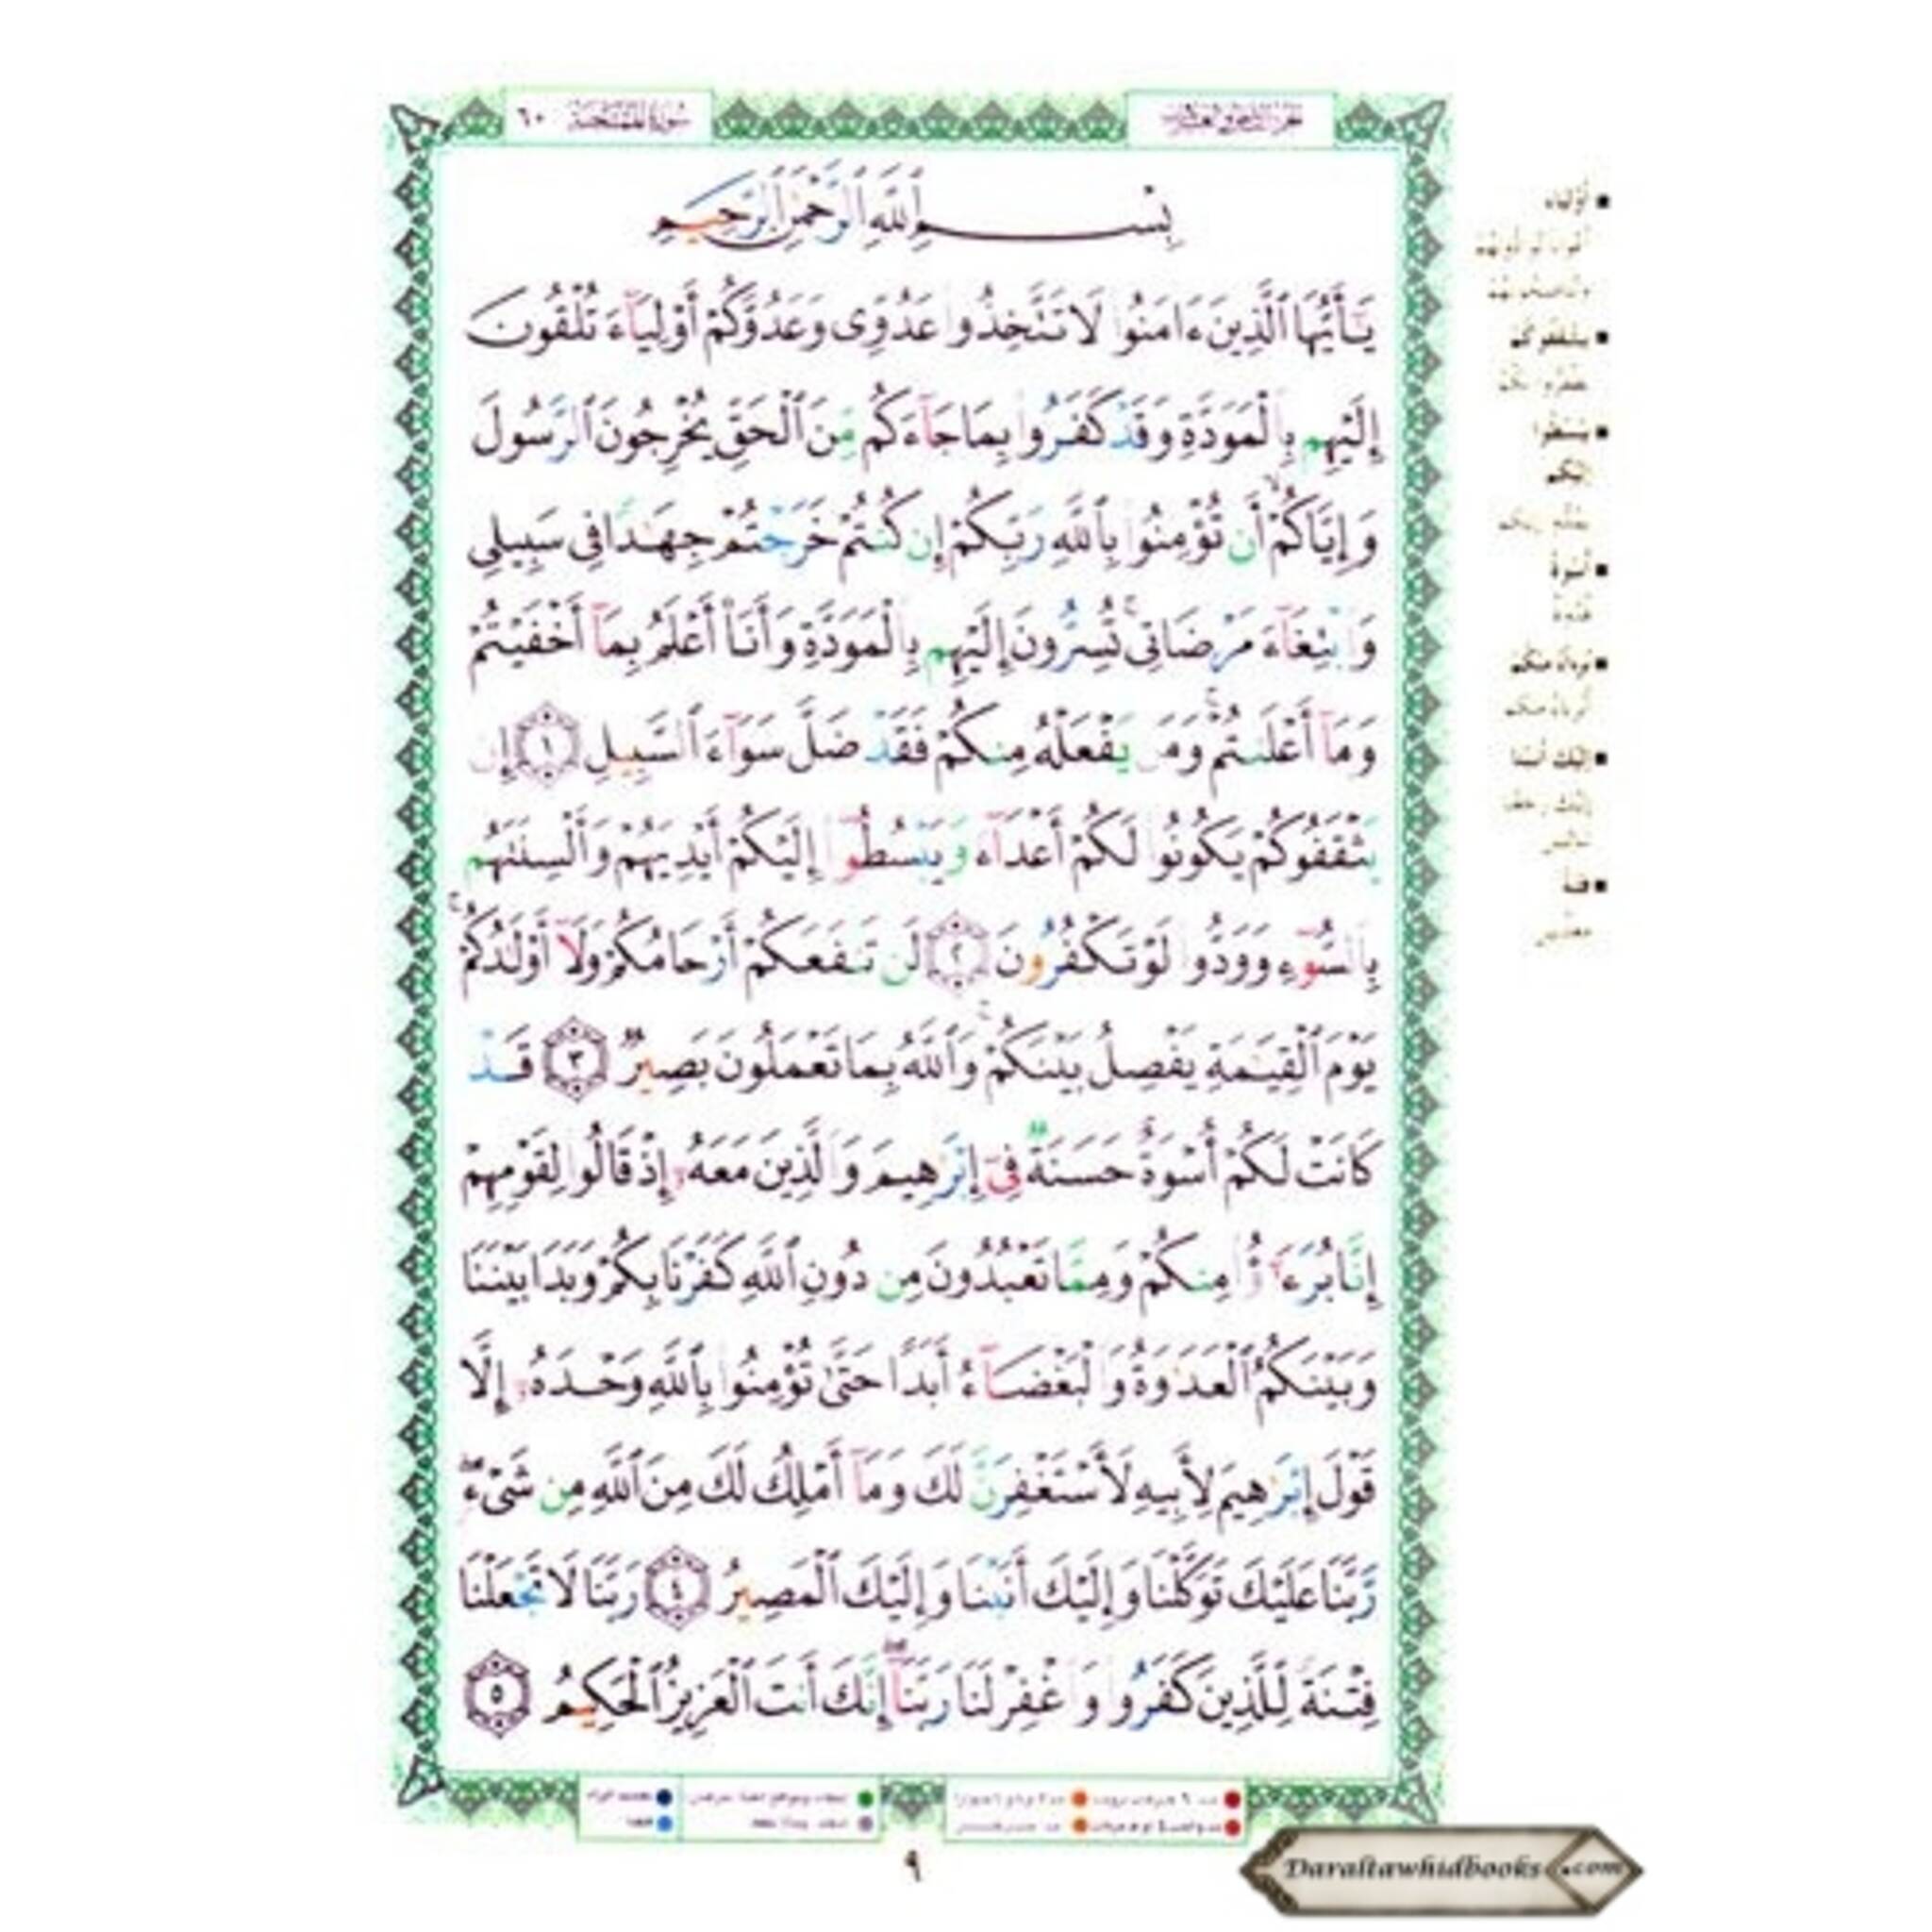 سورة الممتحنة ٦٠
بِسْمِ ٱللَّهِ ٱلرَّحْمَٰنِ ٱلرَّحِيمِ
يَٰٓأَيُّهَا ٱلَّذِينَ ءَامَنُوا۟ لَا تَتَّخِذُوا۟ عَدُوِّى وَعَدُوَّكُمْ أَوْلِيَآءَ تُلْقُونَ
إِلَيْهِم بِٱلْمَوَدَّةِ وَقَدْ كَفَرُوا۟ بِمَا جَآءَكُم مِّنَ ٱلْحَقِّ يُخْرِجُونَ ٱلرَّسُولَ
وَإِيَّاكُمْ ۙ أَن تُؤْمِنُوا۟ بِٱللَّهِ رَبِّكُمْ إِن كُنتُمْ خَرَجْتُمْ جِهَٰدًا فِى سَبِيلِى
وَٱبْتِغَآءَ مَرْضَاتِى ۚ تُسِرُّونَ إِلَيْهِم بِٱلْمَوَدَّةِ وَأَنَا۠ أَعْلَمُ بِمَآ أَخْفَيْتُمْ
وَمَآ أَعْلَنتُمْ ۚ وَمَن يَفْعَلْهُ مِنكُمْ فَقَدْ ضَلَّ سَوَآءَ ٱلسَّبِيلِ ١ إِن
يَثْقَفُوكُمْ يَكُونُوا۟ لَكُمْ أَعْدَآءً وَيَبْسُطُوٓا۟ إِلَيْكُمْ أَيْدِيَهُمْ وَأَلْسِنَتَهُم
بِٱلسُّوٓءِ وَوَدُّوا۟ لَوْ تَكْفُرُونَ ٢ لَن تَنفَعَكُمْ أَرْحَامُكُمْ وَلَآ أَوْلَٰدُكُمْ ۚ
يَوْمَ ٱلْقِيَٰمَةِ يَفْصِلُ بَيْنَكُمْ ۚ وَٱللَّهُ بِمَا تَعْمَلُونَ بَصِيرٌ ٣ قَدْ
كَانَتْ لَكُمْ أُسْوَةٌ حَسَنَةٌ فِىٓ إِبْرَٰهِيمَ وَٱلَّذِينَ مَعَهُۥٓ إِذْ قَالُوا۟ لِقَوْمِهِمْ
إِنَّا بُرَءَٰٓؤُا۟ مِنكُمْ وَمِمَّا تَعْبُدُونَ مِن دُونِ ٱللَّهِ كَفَرْنَا بِكُمْ وَبَدَا بَيْنَنَا
وَبَيْنَكُمُ ٱلْعَدَٰوَةُ وَٱلْبَغْضَآءُ أَبَدًا حَتَّىٰ تُؤْمِنُوا۟ بِٱللَّهِ وَحْدَهُۥٓ إِلَّا
قَوْلَ إِبْرَٰهِيمَ لِأَبِيهِ لَأَسْتَغْفِرَنَّ لَكَ وَمَآ أَمْلِكُ لَكَ مِنَ ٱللَّهِ مِن شَىْءٍ ۖ
رَّبَّنَا عَلَيْكَ تَوَكَّلْنَا وَإِلَيْكَ أَنَبْنَا وَإِلَيْكَ ٱلْمَصِيرُ ٤ رَبَّنَا لَا تَجْعَلْنَا
فِتْنَةً لِّلَّذِينَ كَفَرُوا۟ وَٱغْفِرْ لَنَا رَبَّنَآ ۖ إِنَّكَ أَنتَ ٱلْعَزِيزُ ٱلْحَكِيمُ ٥
أولياء
يثقفوكم
إليكم
أسوة
إليك أنبنا
٩
Daraltawhidbooks.com